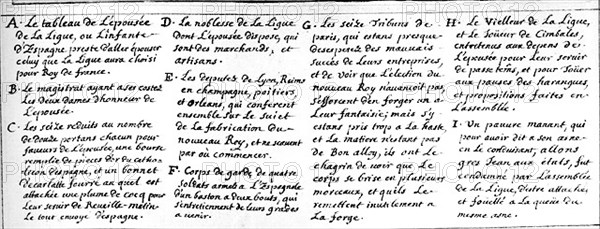 A. Le tableau de L'epousée
de La Ligue, ou L'infante
d'Espagne preste d'aller épouser
celuy que La Ligue aura choisi
pour Roy de france.
B. Le magistrat ayant a ses costez
Les deux dames d'honneur de
L'epousée.
C. Les seize reduits au nombre
de douze portans chacun pour
faveurs de L'epousée, une bourse
remplie de pieces d'or du catho-
licon d'espagne, et un bonnet
d'ecarlatte fourré au quel est
attachée une plume de Coq pour
Leur servir de Reveille-matin.
Le tout envoyé d'espagne.
D. La noblesse de La Ligue
dont L'epousée dispose, qui
sont des marchands, et
artisans.
E. Les deputez de Lyon, Reims
en champagne, poitiers,
et Orleans, qui conferent
ensemble sur Le sujet
de La fabrication du
nouveau Roy, et ne scavent
par où commencer.
F. Corps de garde de quatre
Soldats armés a L'Espagnole
d'un baston a deux bouts, qui
s'entretiennent de leurs grades
a venir.
G. Les seize Tribuns de
paris, qui estans presque
desesperez des mauvais
succés de Leurs entreprises,
et de Voir que L'election du
nouveau Roy n'avançoit pas,
s'efforcent d'en forger un a
Leur fantaisie; mais s'y
estans pris trop a La haste,
et La matiere n'estant pas
de Bon alloy, ils ont Le
chagrin de voir que Le
corps se brise en plusieurs
morceaux, et qu'ils Le
remettent inutilement a
La forge.
H. Le Vielleur de La Ligue,
et Le Joüeur de Cimbales,
entretenus aux depens de
L'epousée pour Leur servir
de passe tems, et pour Joüer
aux pauses des harangues,
et propositions faites en
L'assemblée.
I. Un pauvre manant, qui
pour avoir dit a son asne
en Le conduisant; allons
gros Jean aux états, fut
condamné par L'assemblée
de La Ligue, d'estre attaché
et fouëtté a La queüe du
mesme asne.